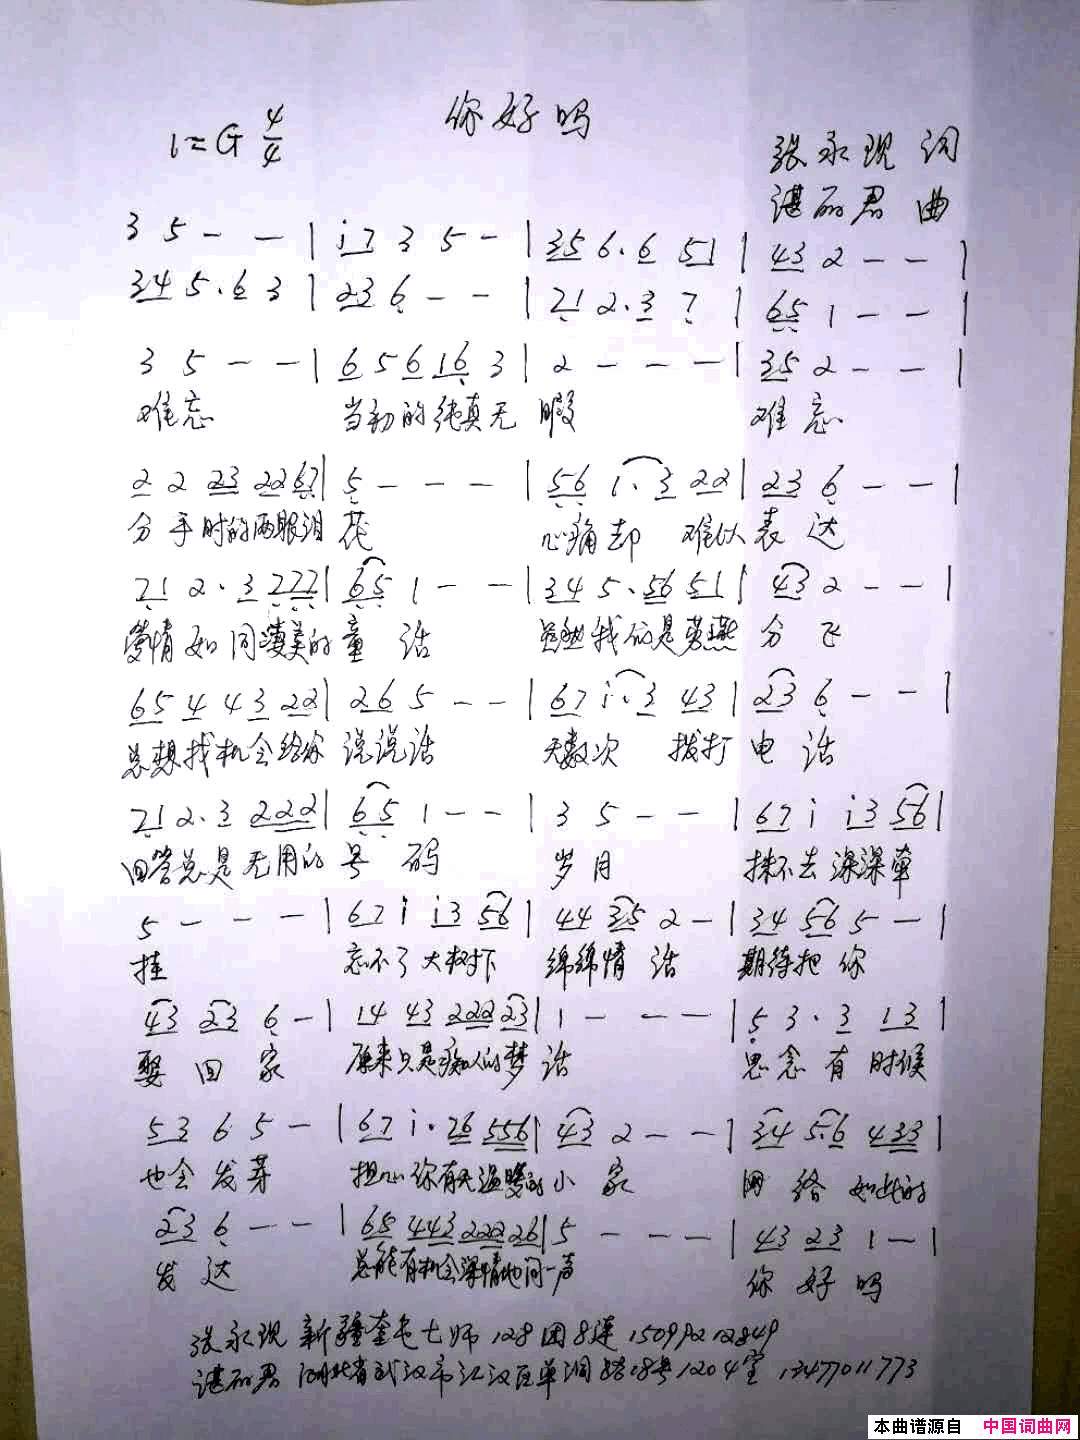 你好吗
1=G 4/4
张永现 词
谌丽君 曲
3 5 - - | i 7 3 5 - | 3 5 6 · 6 5 1 | 4 3 2 - - |
3 4 5 · 6 3 | 2 3 6 - - | 2 1 2 · 3 7 | 6 5 1 - - |
3 5 - - | 6 5 6 1 6 3 | 2 - - - | 3 5 2 - - |
难忘 当初的纯真无暇 难忘
2 2 2 3 2 2 6 7 | 5 - - - | 5 6 1 · 3 2 2 | 2 3 6 - - |
分手时的两眼泪花 心痛却 难以表达
2 1 2 · 3 2 2 2 | 6 5 1 - - | 3 4 5 · 5 6 5 1 | 4 3 2 - - |
爱情如同凄美的童话 虽然我们是劳燕分飞
6 5 4 4 3 2 2 | 2 6 5 - - | 6 7 i · 3 4 3 | 2 3 6 - - |
总想找机会给你说说话 无数次 拨打电话
2 1 2 · 3 2 2 2 | 6 5 1 - - | 3 5 - - | 6 7 i i 3 5 6 |
回答总是无用的号码 岁月 抹不去深深牵
5 - - - | 6 7 i i 3 5 6 | 4 4 3 5 2 - | 3 4 5 6 5 - |
挂 忘不了大树下 绵绵情话 期待把你
4 3 2 3 6 - | 1 4 4 3 2 2 2 2 3 | 1 - - - | 5 3 · 3 1 3 |
娶回家 原来只是痴人的梦话 思念有时候
5 3 6 5 - | 6 7 i · 7 6 5 5 6 | 4 3 2 - - | 3 4 5 · 6 4 3 3 |
也会发芽 担心你有无温暖的小家 网络如此的
2 3 6 - - | 6 5 4 4 3 2 2 2 2 6 | 5 - - - | 4 3 2 3 1 - |
发达 总能有机会深情地问一声 你好吗
张永现 新疆奎屯七师128团8连 15099212849
谌丽君 湖北省武汉市江汉区单洞路18号1204室 13477011773
本曲谱源自 中国词曲网